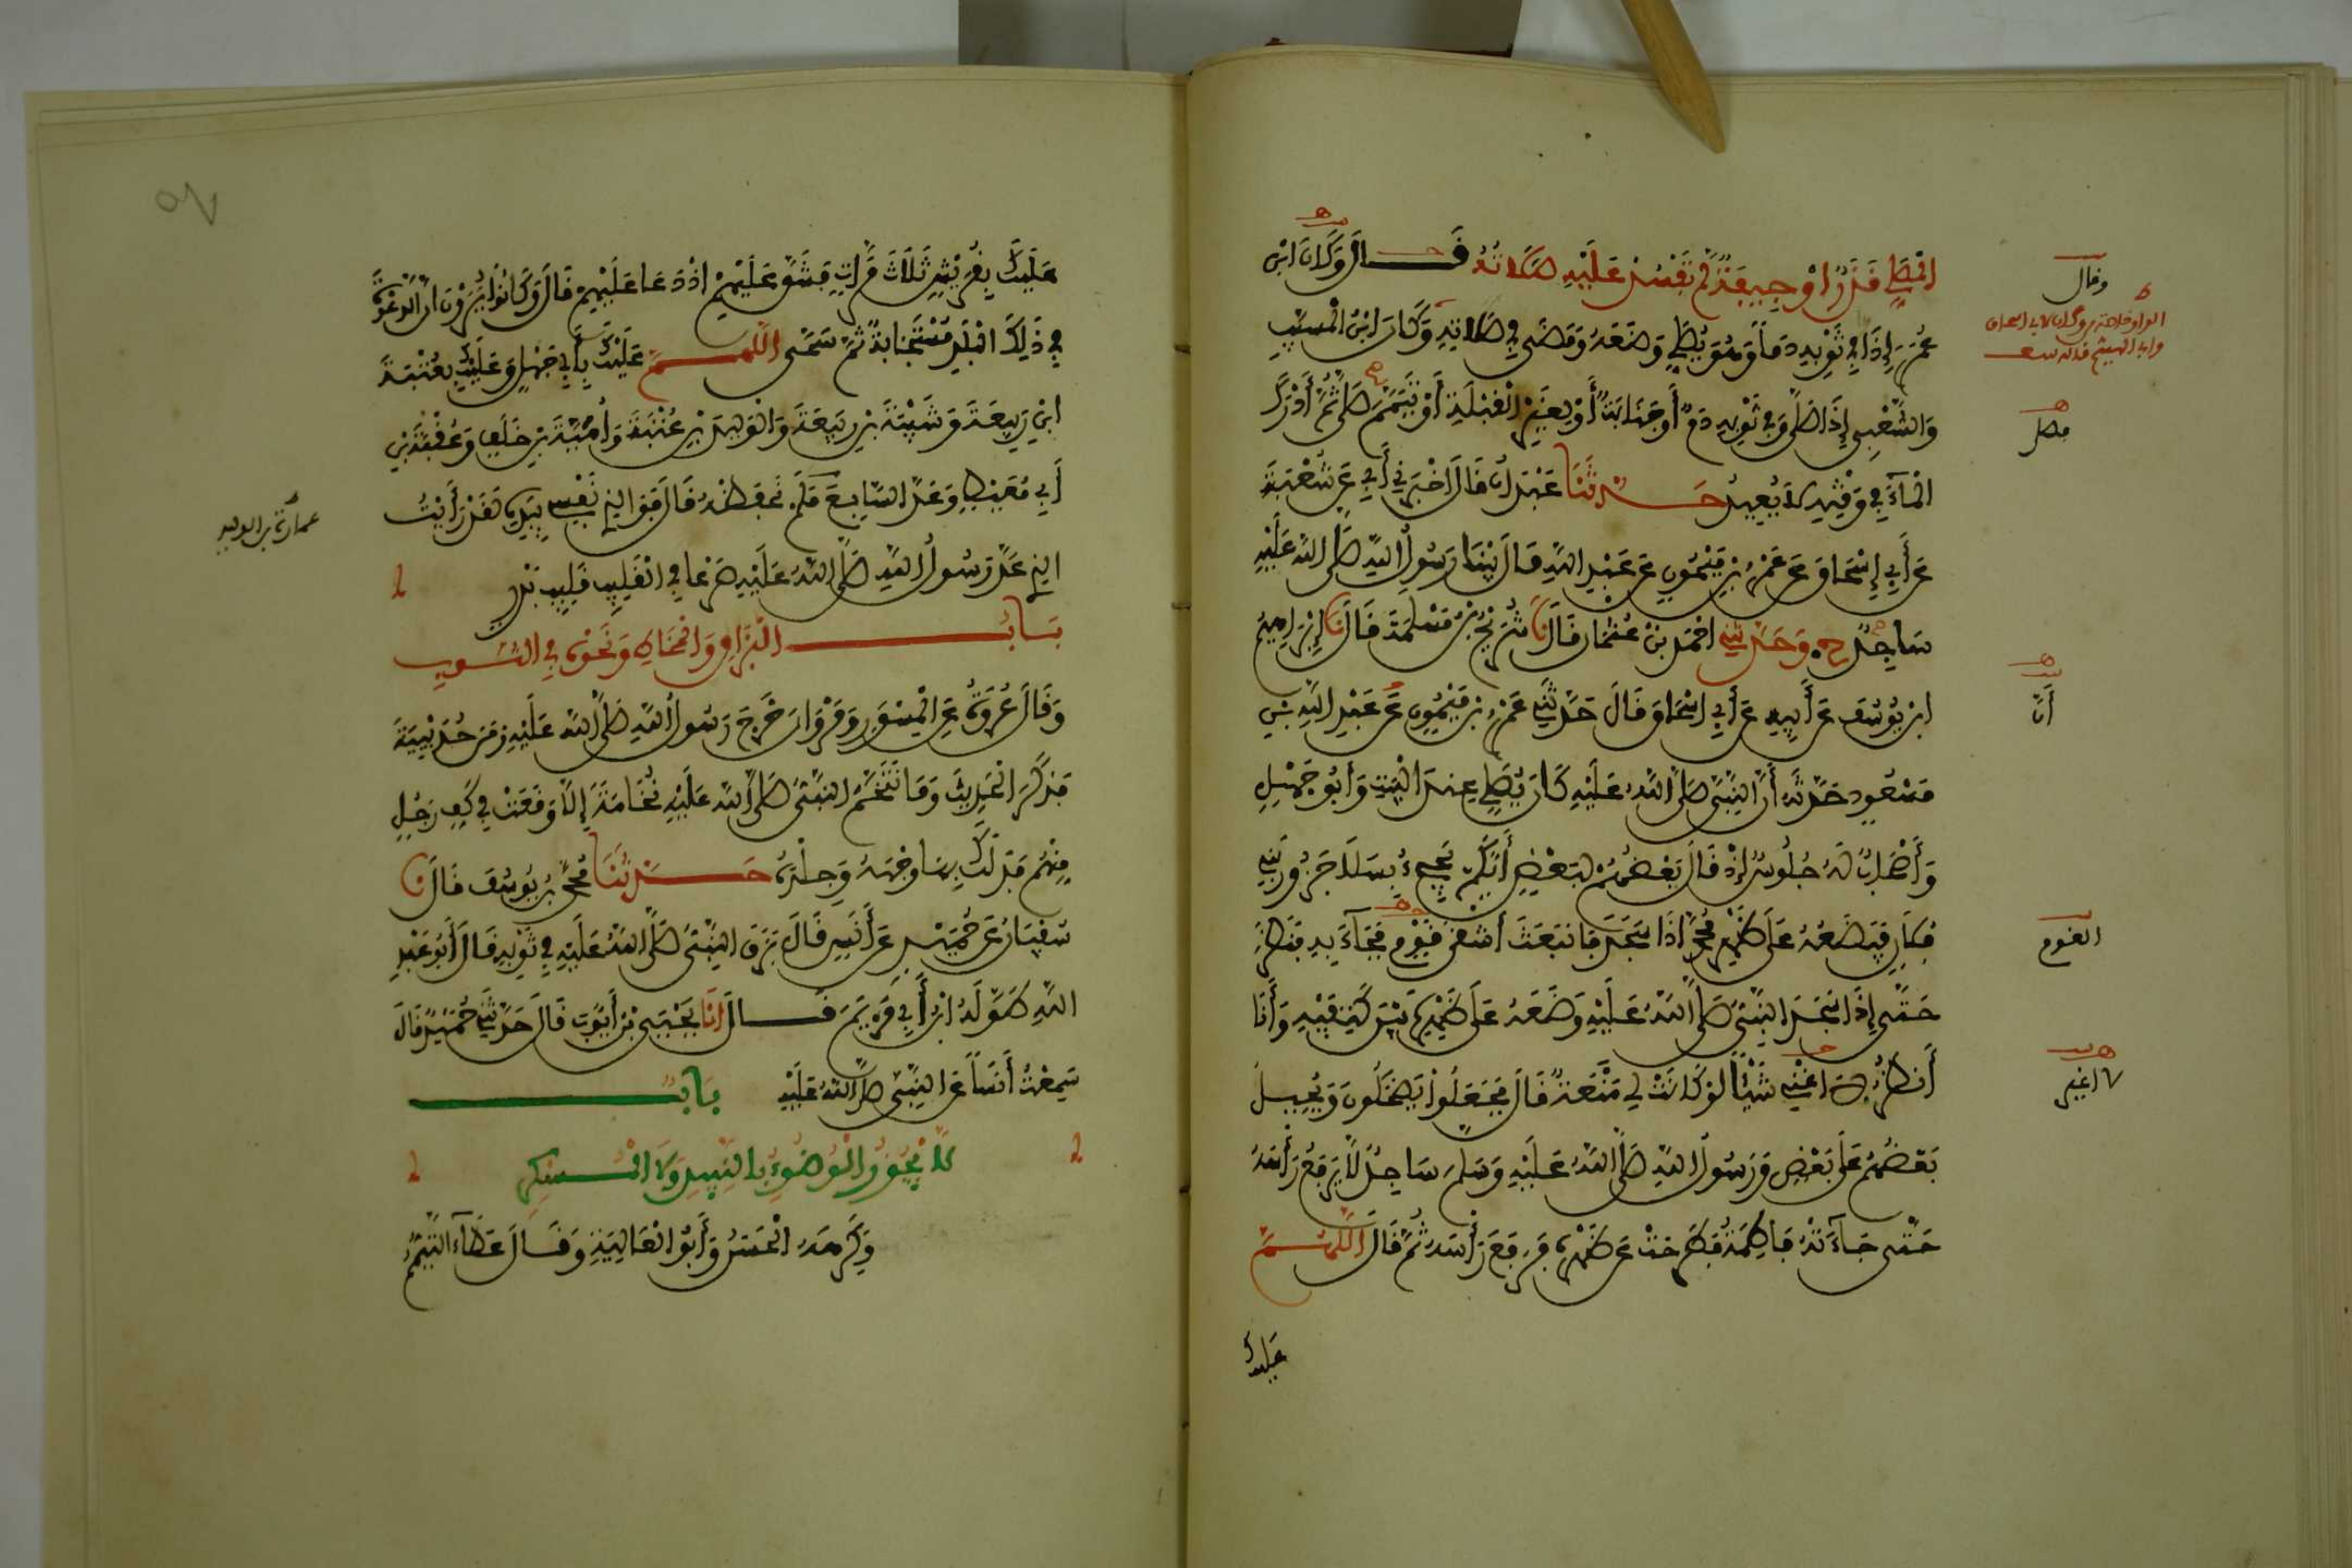 المصلي قذر أو جيفة لم تفسد عليه صلاته قال وكان ابن
عمر إذا رأى في ثوبه دما وهو يصلي وضعه ومضى في صلاته وكان ابن المسيب
والشعبي إذا صلى وفي ثوبه دم أو جنابة أو لغير القبلة أو تيمم صلى ثم أدرك
الماء في وقته لا يعيد حدثنا عبدان قال أخبرني أبي عن شعبة
عن أبي إسحاق عن عمرو بن ميمون عن عبد الله قال بينا رسول الله صلى الله عليه
ساجد ح وحدثني احمد بن عثمان قال نا شريح بن مسلمة قال نا إبراهيم
ابن يوسف عن أبيه عن أبي اسحاق قال حدثني عمرو بن ميمون عن عبد الله بن
مسعود حدثه أن النبي صلى الله عليه كان يصلي عند البيت وأبو جهل
وأصحاب له جلوس إذ قال بعضهم لبعض أيكم يجيء بسلا جزور بني
فلان فيضعه على ظهر محمد إذا سجد فانبعث أشقى قوم فجاء به فنظر
حتى إذا سجد النبي صلى الله عليه وضعه على ظهره بين كتفيه وأنا
أنظر لا اغني شيئا لو كانت لي منعة قال فجعلوا يضحكون ويحيل
بعضهم على بعض ورسول الله صلى الله عليه وسلم ساجد لا يرفع رأسه
حتى جاءته فاطمة فطرحت عن ظهره فرفع رأسه ثم قال اللهم
عليك
وقال
فصلى
أنا
القوم
لا اغير
عليك بقريش ثلاث مرات فشق عليهم اذ دعا عليهم قال وكانوا يرون ان الدعوة
في ذلك البلد مستجابة ثم سمى اللهم عليك بأبي جهل وعليك بعتبة
ابن ربيعة وشيبة بن ربيعة والوليد بن عتبة وأمية بن خلف وعقبة بن
أبي معيط وعد السابع فلم نحفظه قال فوالذي نفسي بيده لقد رأيت
الذي عد رسول الله صلى الله عليه صرعى في القليب قليب بدر
باب البزاق والمخاط ونحوه في الثوب
وقال عروة عن المسور ومروان خرج رسول الله صلى الله عليه زمن حديبية
فذكر الحديث وما تنخم النبي صلى الله عليه نخامة إلا وقعت في كف رجل
منهم فدلك بها وجهه وجلده حدثنا محمد بن يوسف قال نا
سفيان عن حميد عن أنس قال بزق النبي صلى الله عليه في ثوبه قال أبو عبد
الله طوله ابن أبي مريم قال أنا يحيى بن أيوب قال حدثني حميد قال
سمعت أنسا عن النبي صلى الله عليه باب
لا يجوز الوضوء بالنبيذ ولا المسكر
وكرهه الحسن وأبو العالية وقال عطاء التيمم
عمارة بن الوليد